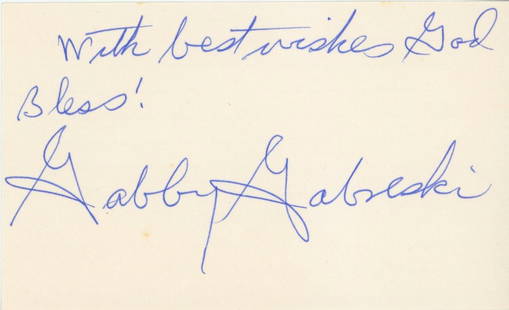 With best wishes God
Bless!
Gabby Gabreski